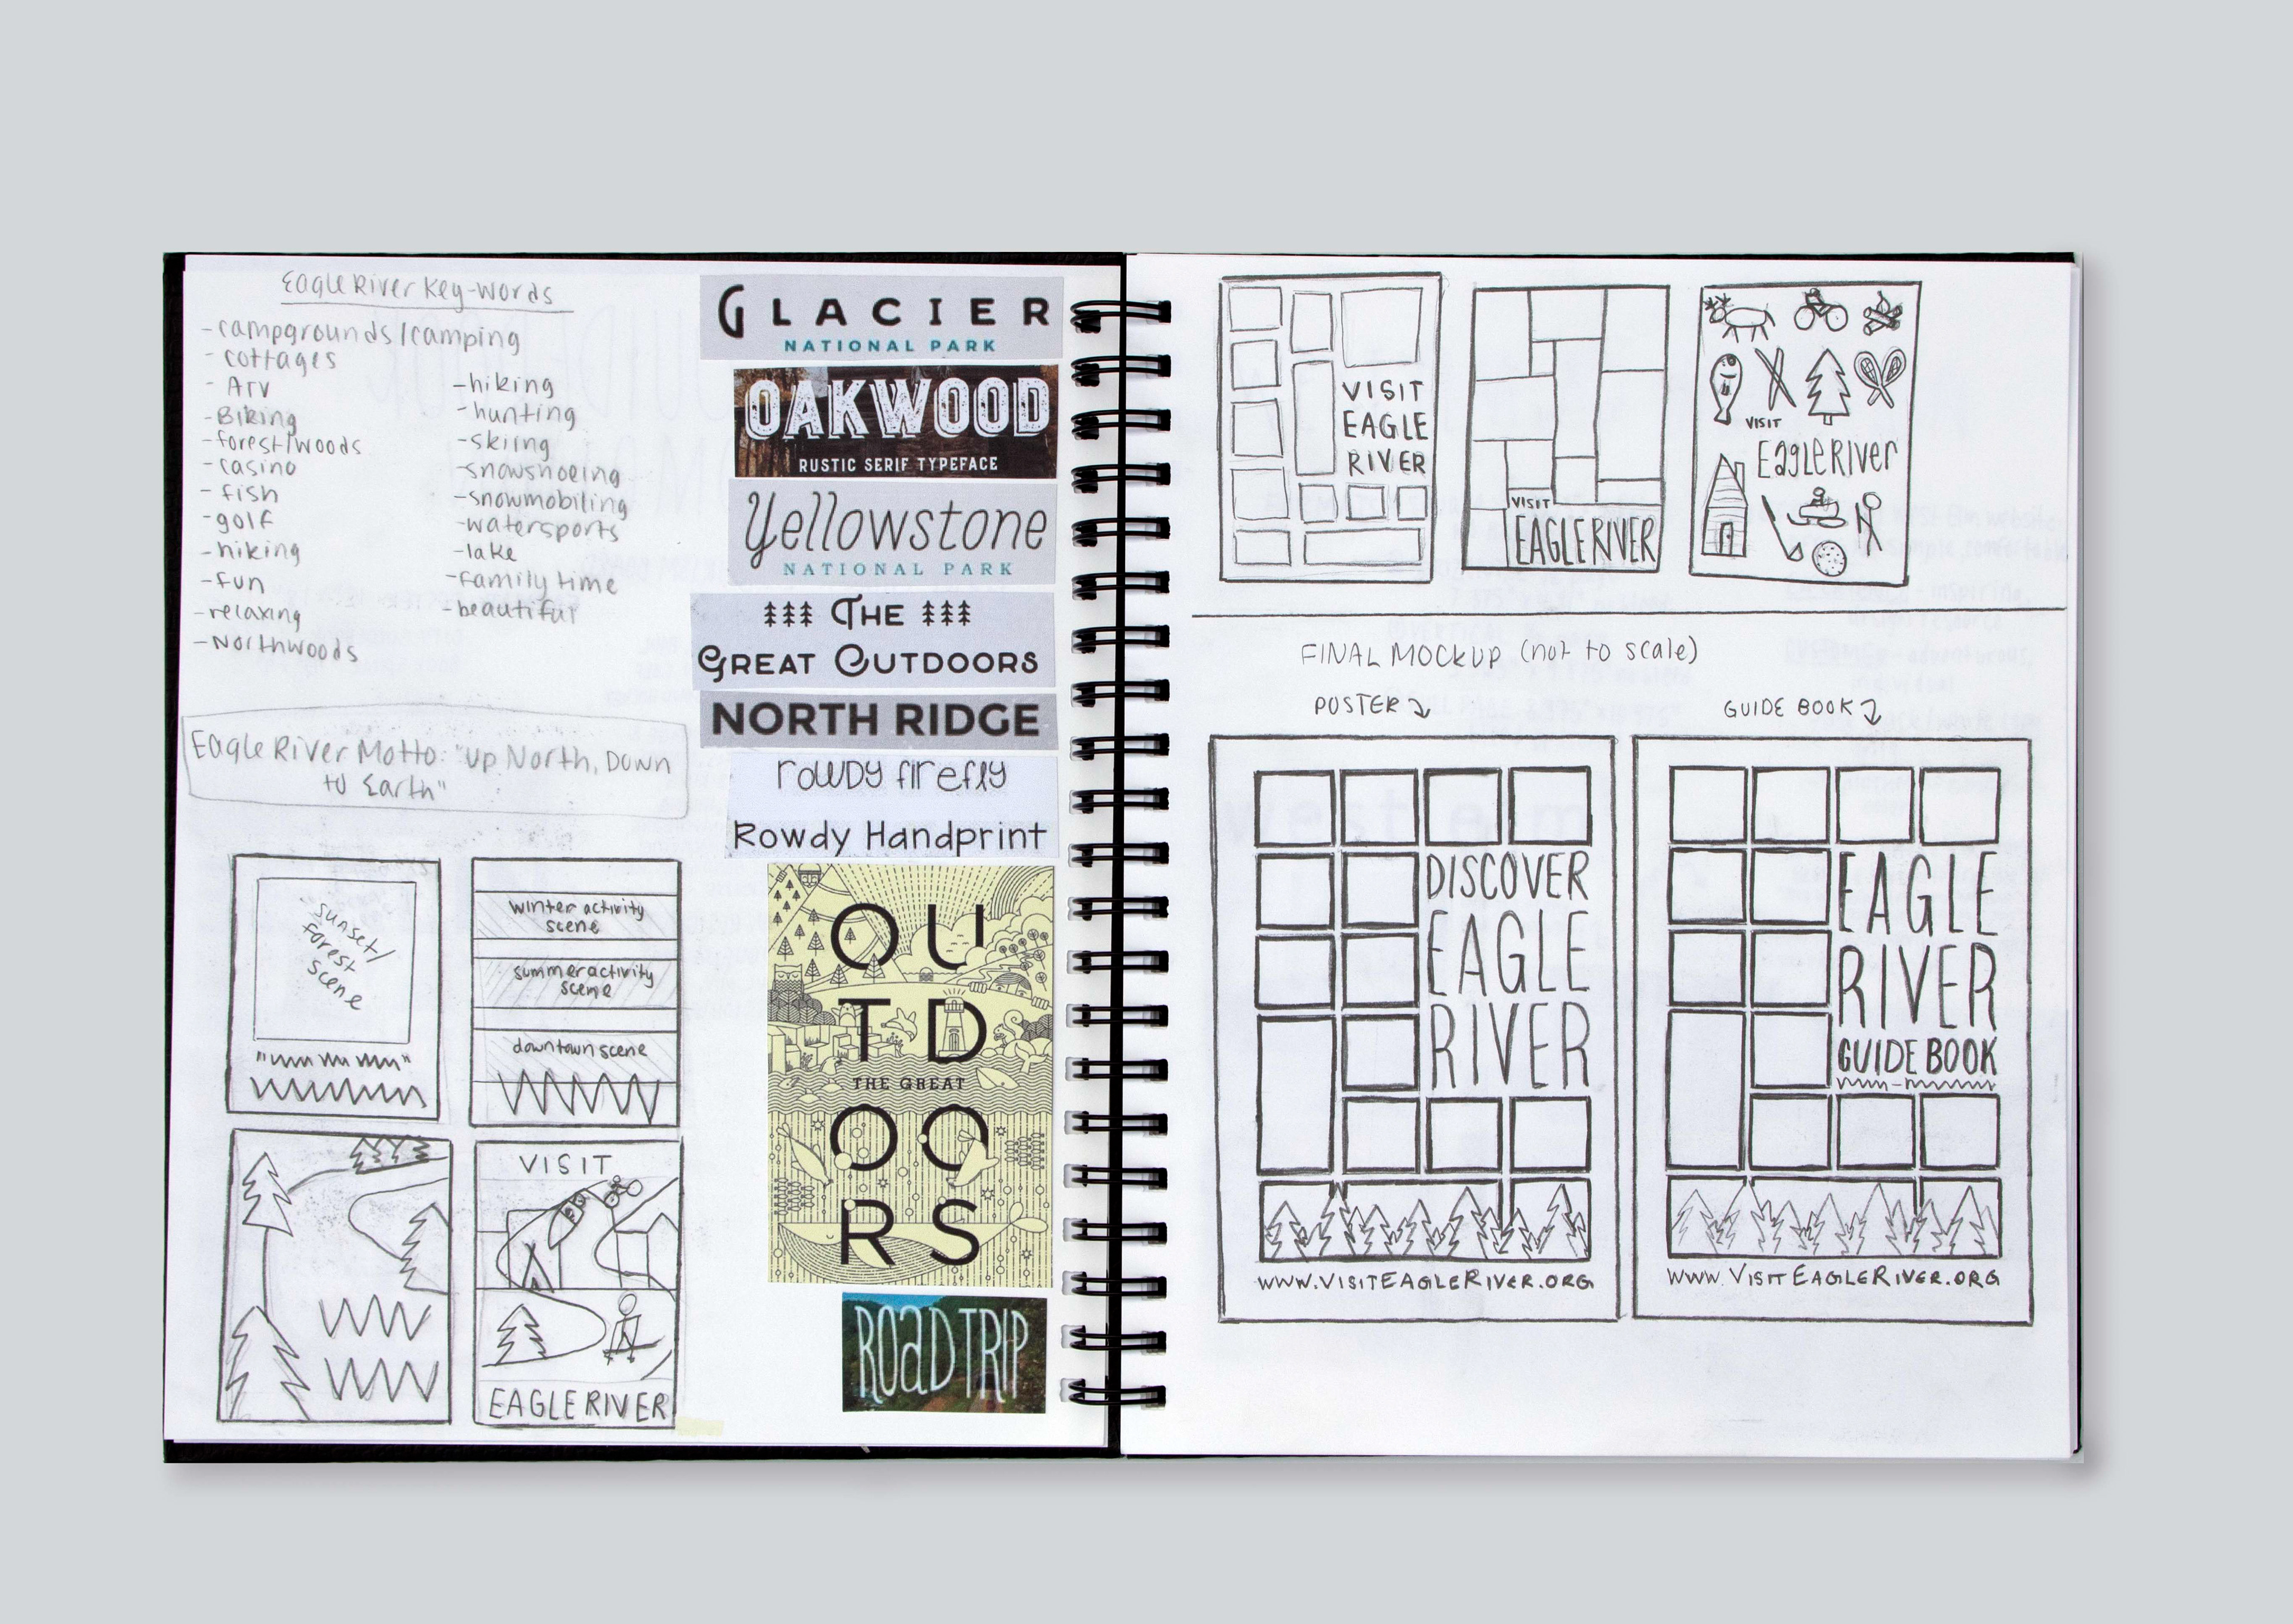 Eagle River Key-words
-campgrounds/camping
- cottages
- Atv
-Biking
-forest/woods
-casino
- fish
-golf
-hiking
-fun
-relaxing
-Northwoods
-hiking
-hunting
-skiing
-snowshoeing
-snowmobiling
-watersports
-lake
-family time
-beautiful
Eagle River Motto: "up North, Down
to Earth"
sunset/
forest
scene
winter activity
scene
summer activity
scene
downtown scene
VISIT
EAGLE RIVER
GLACIER
NATIONAL PARK
OAKWOOD
RUSTIC SERIF TYPEFACE
Yellowstone
NATIONAL PARK
THE
GREAT OUTDOORS
NORTH RIDGE
rowdy firefly
Rowdy Handprint
OU
TD
THE GREAT
OO
RS
ROaDTRIP
VISIT
EAGLE
RIVER
VISIT
EAGLE RIVER
VISIT
EagLE RIVer
FINAL MOCKUP (not to scale)
POSTER
GUIDE BOOK
DISCOVER
EAGLE
RIVER
WWW.VISITEAGLERIVER.ORG
EAGLE
RIVER
GUIDE BOOK
WWW.VISITEAGLERIVER.ORG